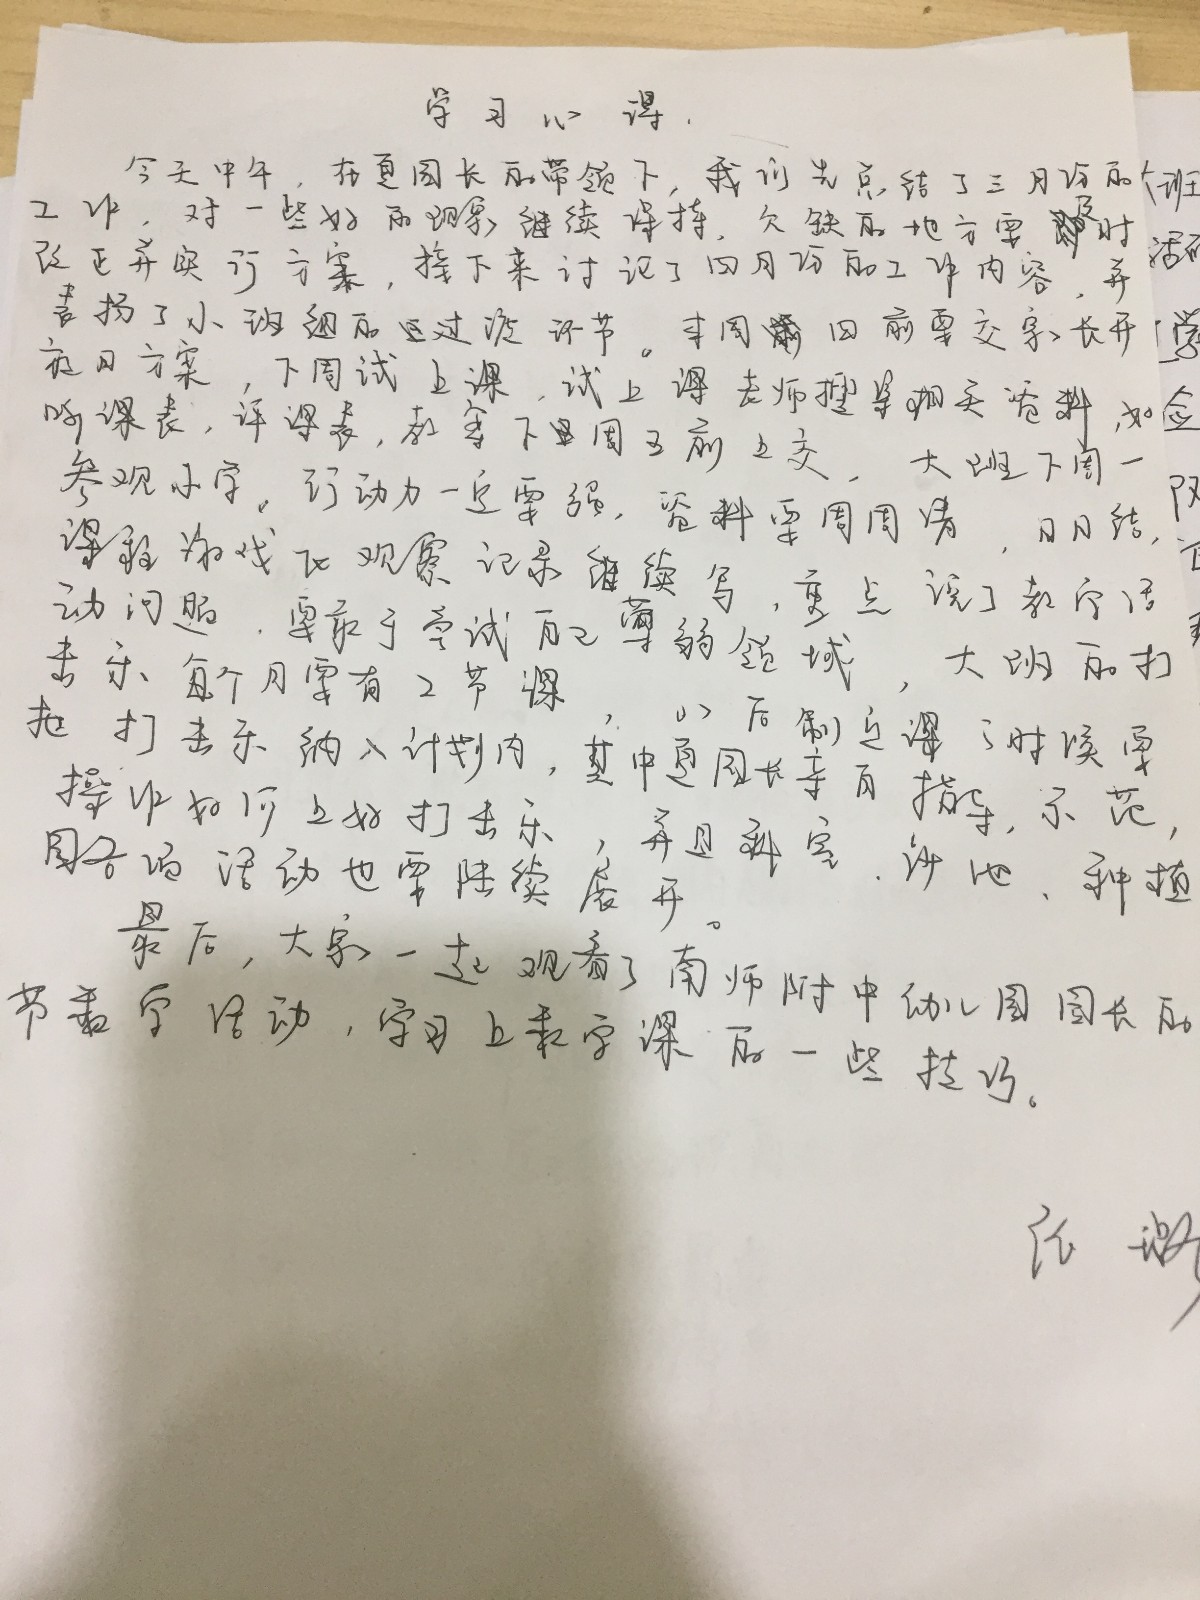 学习心得.
今天中午，在夏园长的带领下，我们先总结了三月份的
工作，对一些好的现象继续保持，欠缺的地方要及时
改正并实行方案，接下来讨论了四月份的工作内容，并
表扬了小班组的过渡环节。本周四前要交家长开
放日方案，下周试上课，试上课老师整理相关资料，如
听课表，评课表，教案下周五前上交，大班下周一
参观小学。行动力一定要强，资料要周周清，日月结，
课程游戏化观察记录继续写，重点说了教学活
动问题，要敢于尝试自己薄弱领域，大班的打
击乐每个月要有2节课，以后制定课的时候要
把打击乐纳入计划内，其中夏园长亲自指导，示范，
操作如何上好打击乐，并且科室、沙池、种植
园各项活动也要陆续展开。
最后，大家一起观看了南师附中幼儿园园长的
节数学活动，学习上数学课的一些技巧。
张
大班
学